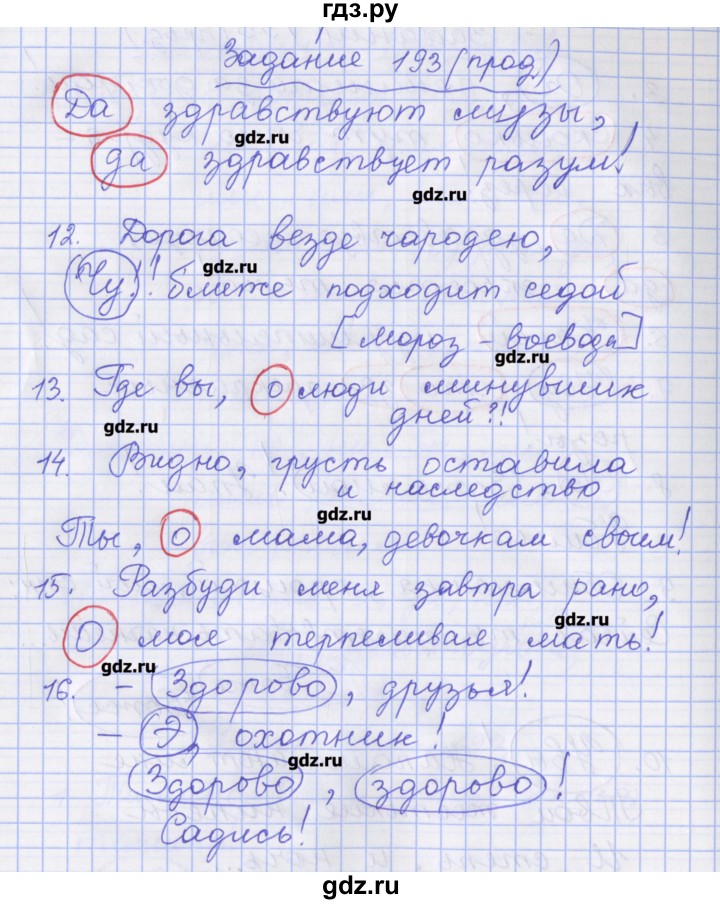 гдз.ру
Задание 193 (прод)
Да здравствуют музы,
gdz.ru
да здравствует разум!
gdz.ru
12. Дорога везде чародею,
gdz.ru
(Чу)! ближе подходит седой
[мороз - воевода]
gdz.ru
13. Где вы, о люди минувших
дней?!
gdz.ru
14. Видно, грусть оставила
и наследство
gdz.ru
Ты, о мама, девочкам своим!
15. Разбуди меня завтра рано,
gdz.ru
О моя терпеливая мать!
gdz.ru
16. - Здорово, друзья!
- Э, охотник!
gdz.ru
Здорово, здорово!
Садись!
gdz.ru